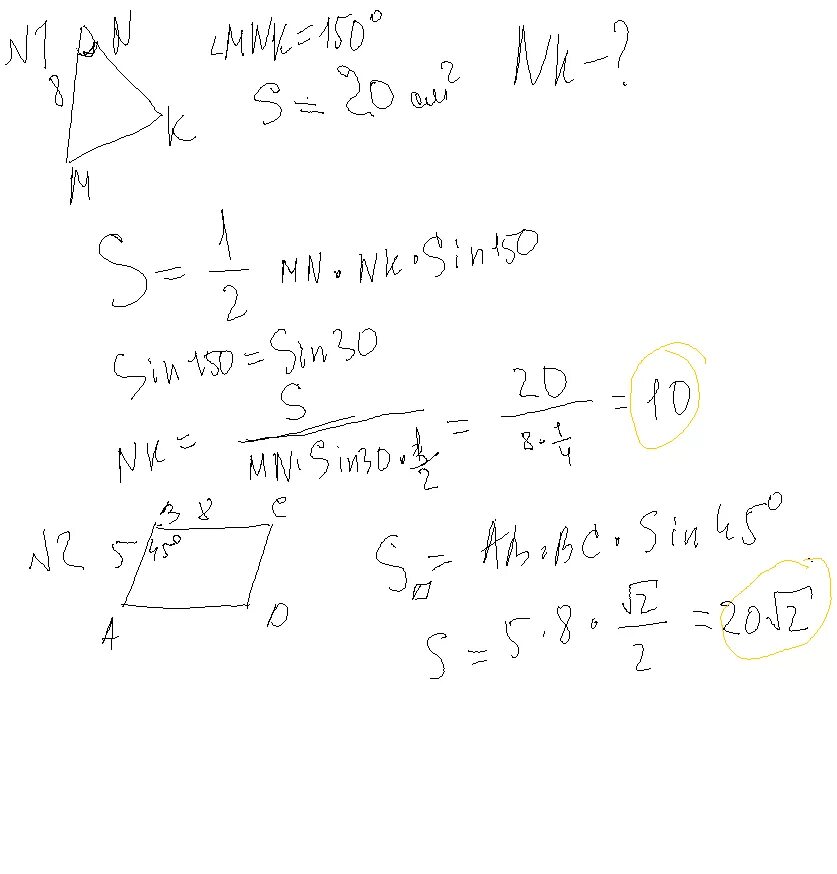 №1 N ∠MNK=150° NK-?
8 S=20 см²
K
M
S = 1/2 MN · NK · Sin150
Sin150 = Sin30
NK = S/(MN·Sin30·1/2) = 20/(8·1/4) = 10
№2 B 8 C
5 45° S▱ = AB·BC·Sin45°
A D
S = 5·8·√2/2 = 20√2